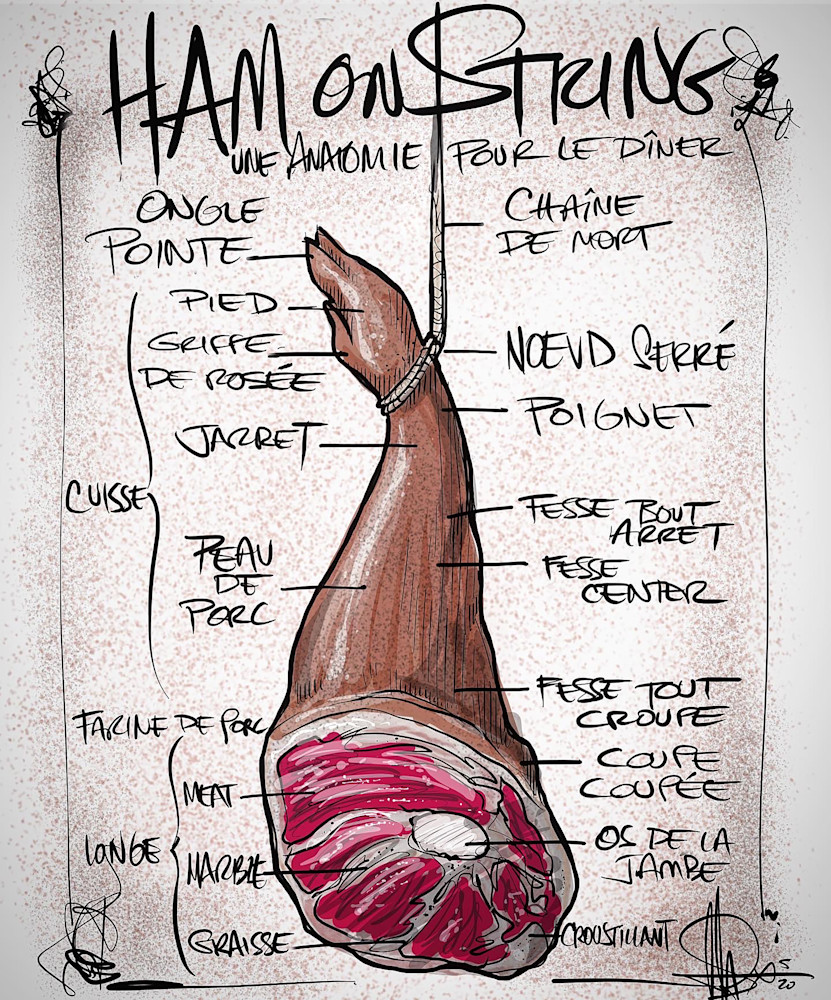 HAM ON STRING
UNE ANATOMIE POUR LE DÎNER
ONGLE
POINTE
PIED
GRIFFE
DE ROSÉE
JARRET
CUISSE
PEAU
DE
PORC
FARINE DE PORC
MEAT
LONGE
MARBLE
GRAISSE
CHAÎNE
DE MORT
NOEUD SERRÉ
POIGNET
FESSE BOUT
ARRET
FESSE
CENTER
FESSE TOUT
CROUPE
COUPE
COUPÉE
OS DE LA
JAMBE
CROUSTILLANT
5
20